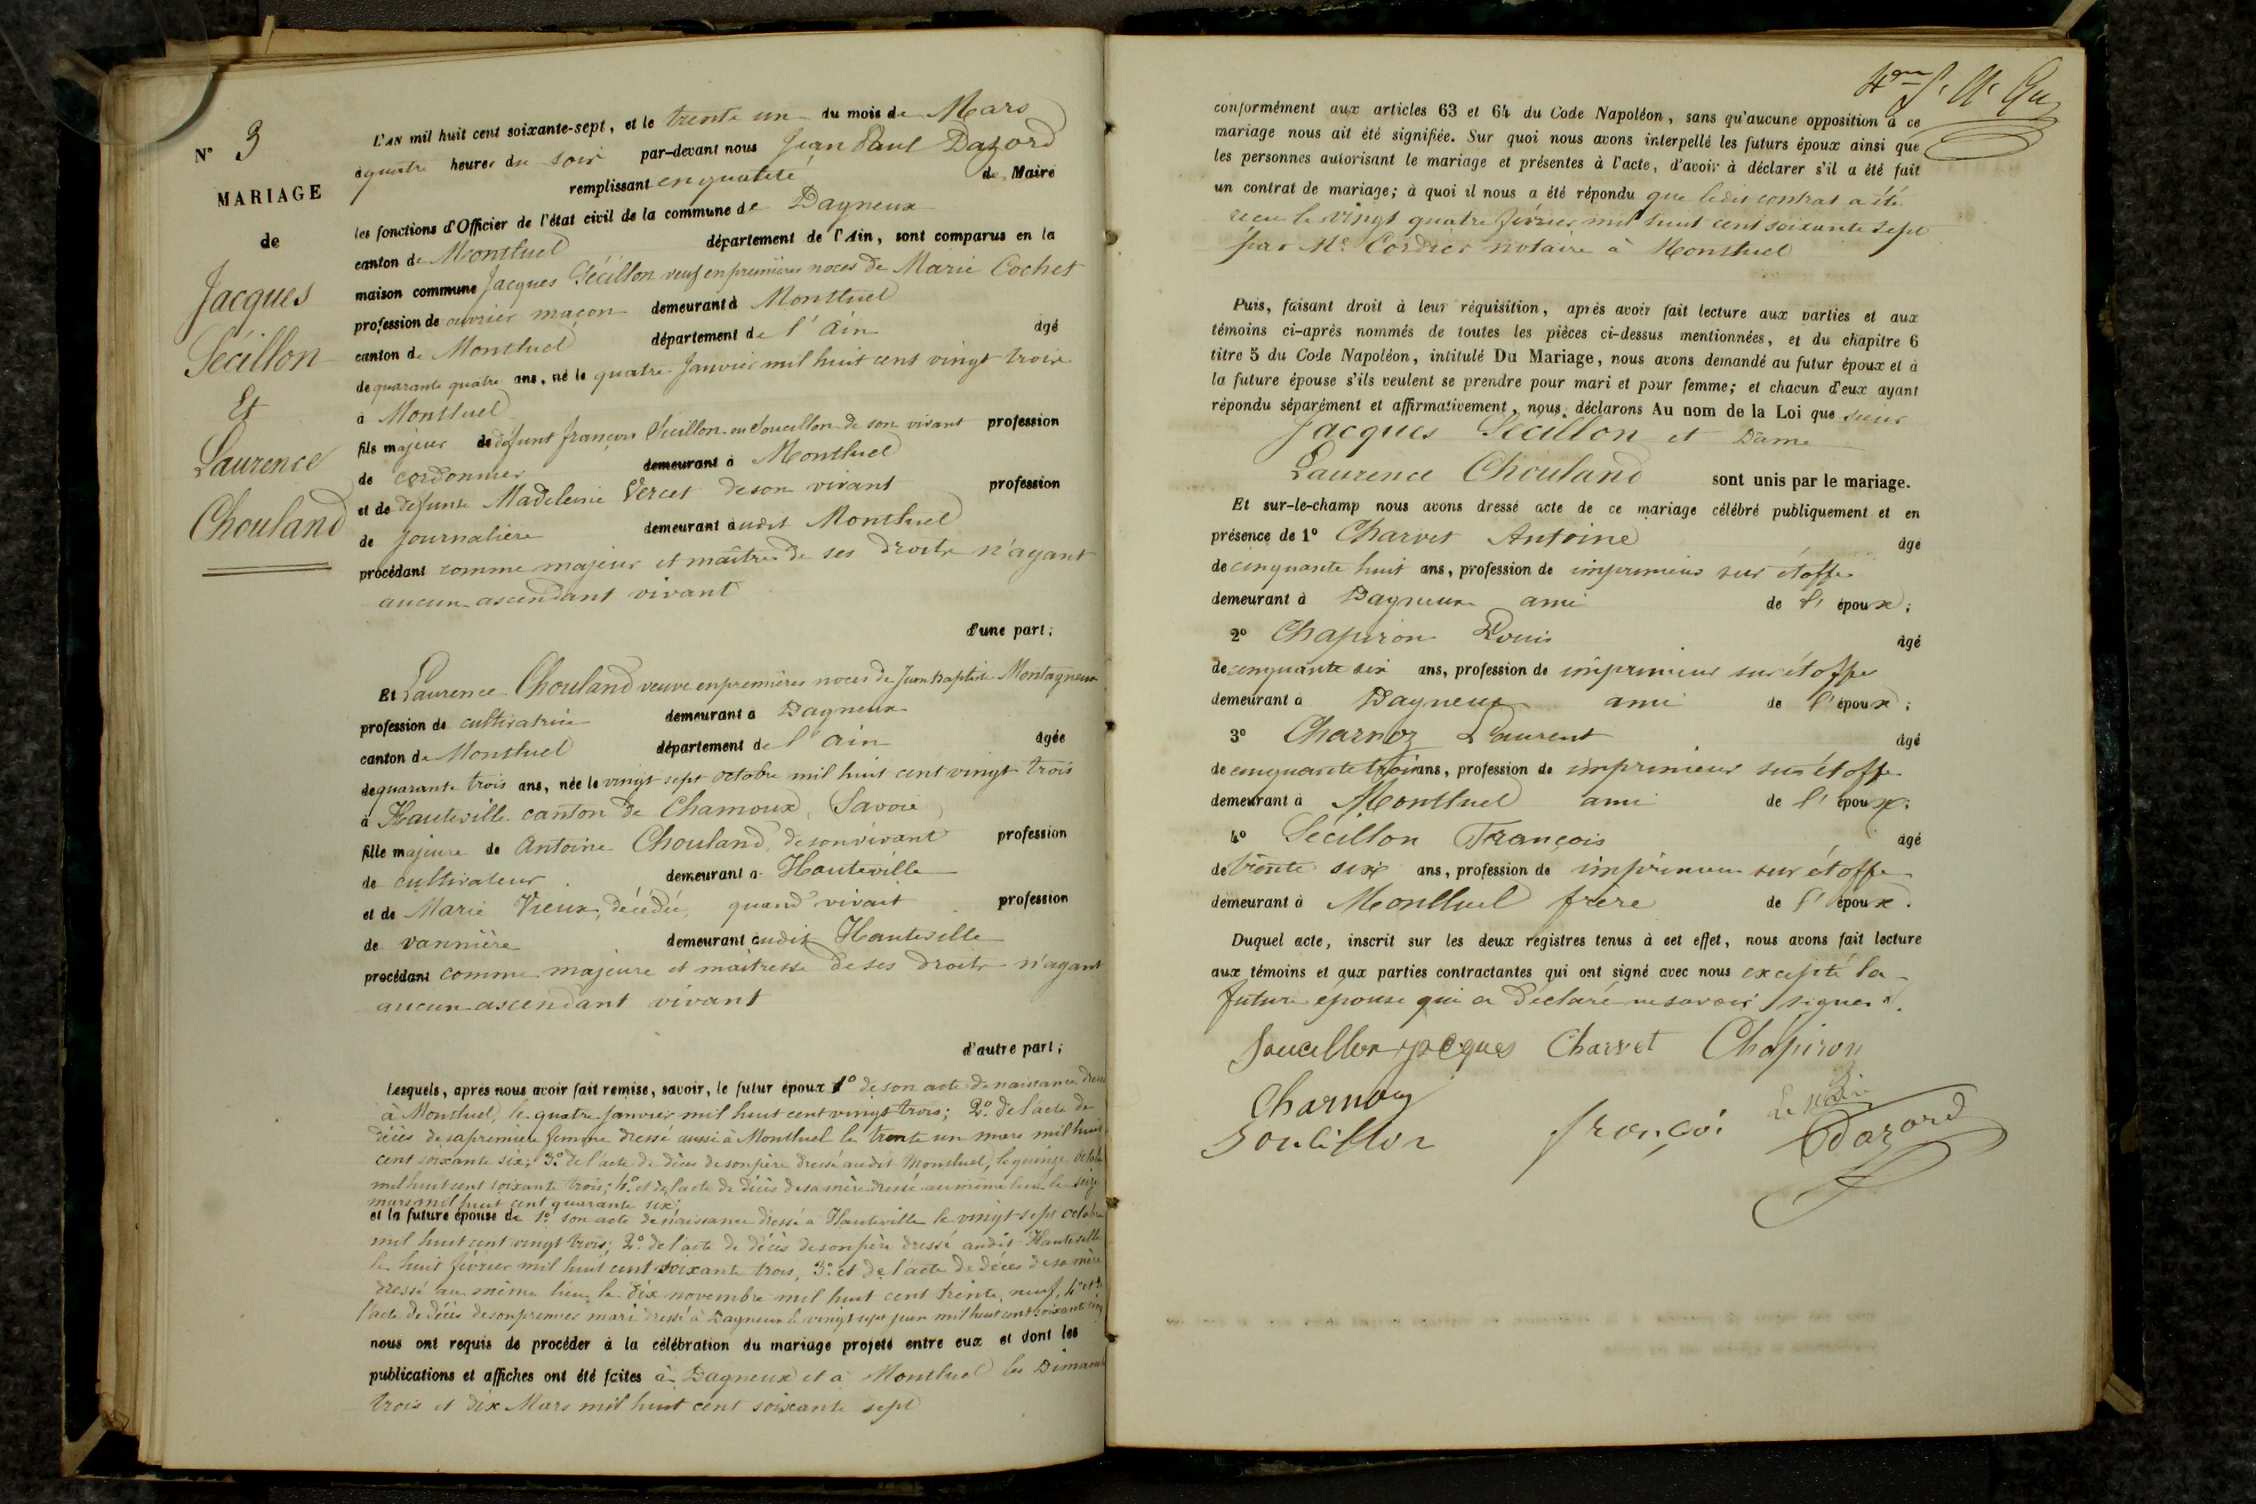 N° 3
MARIAGE
de
Jacques
Sécillon
Et
Laurence
Chouland
L'AN mil huit cent soixante-sept, et le trente un du mois de Mars
à quatre heures du soir par-devant nous Jean Paul Dazord
remplissant en qualité de Maire
les fonctions d'Officier de l'état civil de la commune de Dagneux
canton de Montluel département de l'Ain, sont comparus en la
maison commune Jacques Sécillon veuf en premières noces de Marie Cochet
profession de ouvrier maçon demeurant à Montluel
canton de Montluel département de l'Ain âgé
de quarante quatre ans, né le quatre Janvier mil huit cent vingt trois
à Montluel
fils majeur de défunt françois Sécillon ou Soucillon de son vivant profession
de cordonnier demeurant à Montluel
et de défunte Madeleine Vercet de son vivant profession
de journalière demeurant audit Montluel
procédant comme majeur et maître de ses droits n'ayant
aucun ascendant vivant
d'une part;
Et Laurence Chouland veuve en premières noces de Jean Baptiste Montagneux
profession de cultivatrice demeurant à Dagneux
canton de Montluel département de l'Ain âgée
de quarante trois ans, née le vingt sept octobre mil huit cent vingt trois
à Hauteville canton de Chamoux (Savoie)
fille majeure de Antoine Chouland, de son vivant profession
de cultivateur demeurant à Hauteville
et de Marie Vieux, décédée, quand vivait profession
de vannière demeurant audit Hauteville
procédant comme majeure et maîtresse de ses droits n'ayant
aucun ascendant vivant
d'autre part;
Lesquels, après nous avoir fait remise, savoir, le futur époux 1° de son acte de naissance dressé
à Montluel, le quatre janvier mil huit cent vingt trois; 2° de l'acte de
décès de sa première femme dressé aussi à Montluel le trente un mars mil huit
cent soixante six; 3° de l'acte de décès de son père dressé audit Montluel, le quinze octobre
mil huit cent soixante trois; 4° et de l'acte de décès de sa mère dressé au même lieu le seize
mars mil huit cent quarante six;
et la future épouse de 1° son acte de naissance dressé à Hauteville le vingt-sept octobre
mil huit cent vingt trois; 2° de l'acte de décès de son père dressé audit Hauteville
le huit février mil huit cent soixante trois, 3° et de l'acte de décès de sa mère
dressé au même lieu le dix novembre mil huit cent trente neuf, 4° et de
l'acte de décès de son premier mari dressé à Dagneux le vingt sept juin mil huit cent soixante cinq
nous ont requis de procéder à la célébration du mariage projeté entre eux et dont les
publications et affiches ont été faites à Dagneux et à Montluel les Dimanches
trois et dix Mars mil huit cent soixante sept
conformément aux articles 63 et 64 du Code Napoléon, sans qu'aucune opposition à ce
mariage nous ait été signifiée. Sur quoi nous avons interpellé les futurs époux ainsi que
les personnes autorisant le mariage et présentes à l'acte, d'avoir à déclarer s'il a été fait
un contrat de mariage; à quoi il nous a été répondu que ledit contrat a été
reçu le vingt quatre février mil huit cent soixante sept
par Me Cordier notaire à Montluel
Puis, faisant droit à leur réquisition, après avoir fait lecture aux parties et aux
témoins ci-après nommés de toutes les pièces ci-dessus mentionnées, et du chapitre 6
titre 5 du Code Napoléon, intitulé Du Mariage, nous avons demandé au futur époux et à
la future épouse s'ils veulent se prendre pour mari et pour femme; et chacun d'eux ayant
répondu séparément et affirmativement, nous déclarons Au nom de la Loi que sieur
Jacques Sécillon et Dame
Laurence Chouland sont unis par le mariage.
Et sur-le-champ nous avons dressé acte de ce mariage célébré publiquement et en
présence de 1° Charvet Antoine âgé
de cinquante huit ans, profession de imprimeur sur étoffe
demeurant à Dagneux ami de l'époux;
2° Chapiron Louis âgé
de cinquante six ans, profession de imprimeur sur étoffe
demeurant à Dagneux ami de l'époux;
3° Charnoz Laurent âgé
de cinquante trois ans, profession de imprimeur sur étoffe
demeurant à Montluel ami de l'époux;
4° Sécillon François âgé
de trente six ans, profession de imprimeur sur étoffe
demeurant à Montluel frère de l'époux.
Duquel acte, inscrit sur les deux registres tenus à cet effet, nous avons fait lecture
aux témoins et aux parties contractantes qui ont signé avec nous excepté la
future épouse qui a déclaré ne savoir signer.
Soucillon jacques Charvet Chapiron
Charnoz
Le Maire
Soucillon françoi Dazord